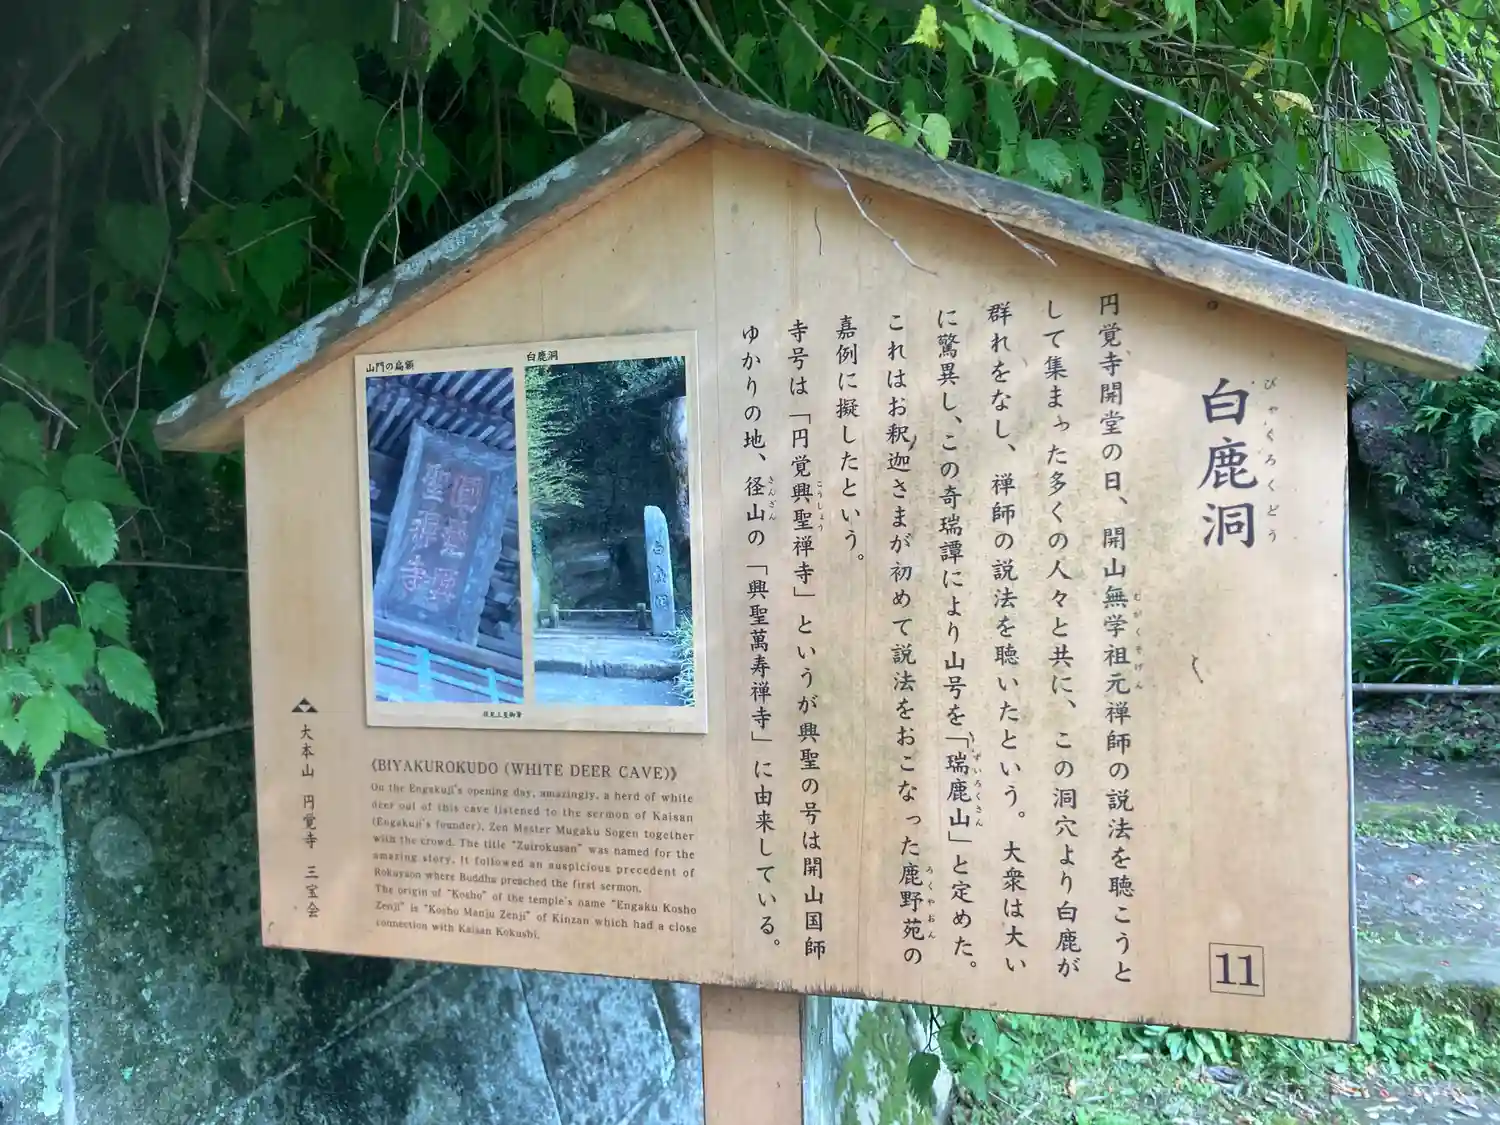 白鹿洞
びゃくろくどう
円覚寺開堂の日、開山無学祖元禅師の説法を聴こうと
むがくそげん
して集まった多くの人々と共に、この洞穴より白鹿が
群れをなし、禅師の説法を聴いたという。大衆は大い
に驚異し、この奇瑞譚により山号を「瑞鹿山」と定めた。
ずいろくさん
これはお釈迦さまが初めて説法をおこなった鹿野苑の
ろくやおん
嘉例に擬したという。
寺号は「円覚興聖禅寺」というが興聖の号は開山国師
こうしょう
ゆかりの地、径山の「興聖萬寿禅寺」に由来している。
きんざん
11
山門の扁額
白鹿洞
白鹿洞
《BIYAKUROKUDO (WHITE DEER CAVE)》
On the Engakuji's opening day, amazingly, a herd of white
deer out of this cave listened to the sermon of Kaisan
(Engakuji's founder), Zen Master Mugaku Sogen together
with the crowd. The title "Zuirokusan" was named for the
amazing story. It followed an auspicious precedent of
Rokuyaon where Buddha preached the first sermon.
The origin of "Kosho" of the temple's name "Engaku Kosho
Zenji" is "Kosho Manju Zenji" of Kinzan which had a close
connection with Kaisan Kokushi.
大本山 円覚寺 三宝会